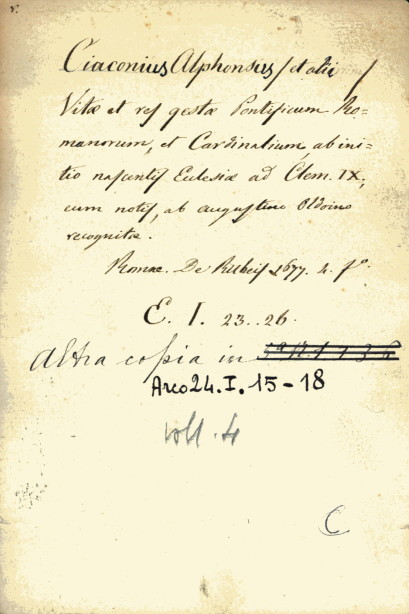 Ciaconius Alphonsus / et alii /
Vitæ et res gestæ Pontificum Ro=
manorum, et Cardinalium, ab ini=
tio nascentis Eclesiæ ad Clem. IX,
cum notis, ab Augustino Oldoino
recognitæ.
Romae. De Rubeis 1677. 4. fo.
E. I. 23..26.
Altra copia in
Arco 24. I. 15-18
voll. 4
C